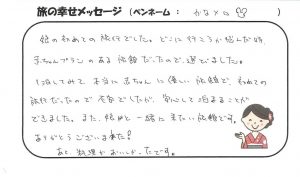 旅の幸せメッセージ（ペンネーム： かな×ロ ）
娘の初めての旅行でした。どこに行こうか悩んだ時
赤ちゃんプランのある旅館だったので選びました。
1泊してみて、本当に赤ちゃんに優しい旅館で、初めての
旅行だったので不安でしたが、安心して泊まることが
できました。また、娘と一緒に来たい旅館です。
ありがとうございました!
あと、料理がおいしかったです。